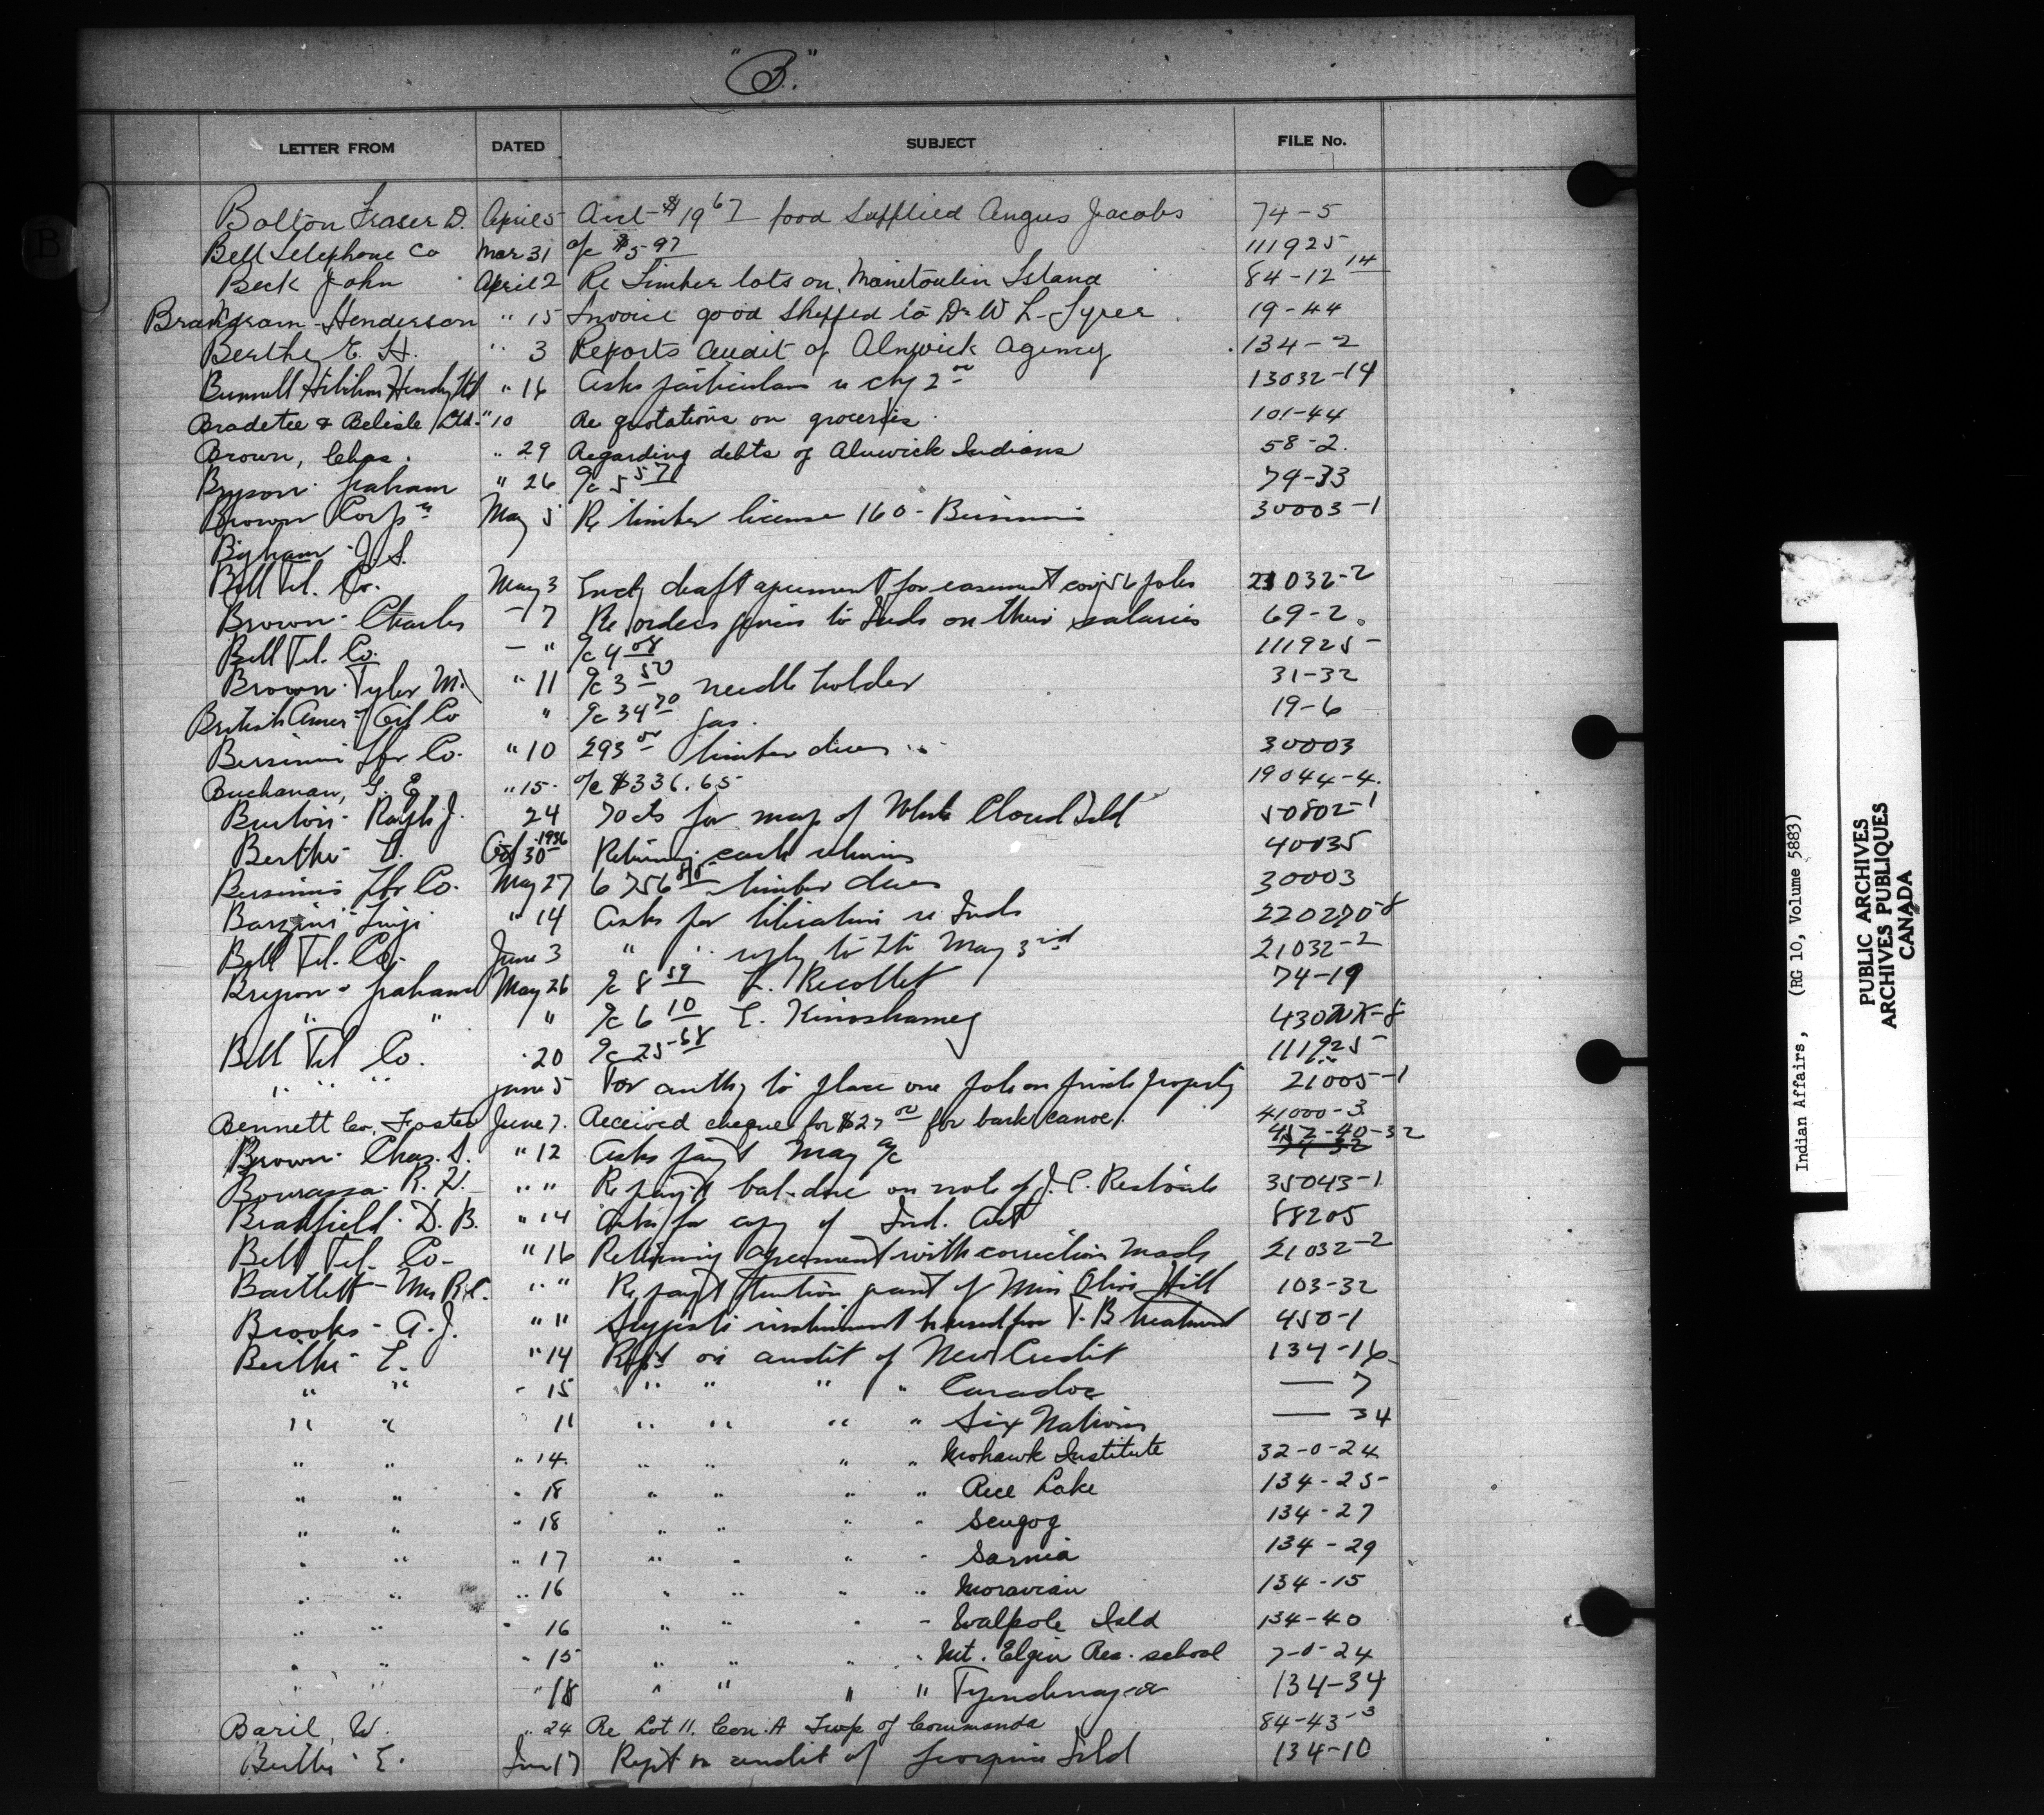 "B."
LETTER FROM DATED SUBJECT FILE No.
Bolton Fraser D. April 5 Acct - $19 67 food supplied Angus Jacobs 74-5
Bell Telephone Co Mar 31 a/c $5 97 111925
Beck John April 2 Re Timber lots on Manitoulin Island 84-12 14
Henderson " 15 Invoice good shipped to Dr W L - Tyrer 19-44
Berthe E. H. " 3 Reports audit of Alnwick Agency 134-2
" 16 Asks particulars re chq 2 00 13032-14
Bradette & Belisle Ltd. " 10 Re quotations on groceries. 101-44
Brown, Chas. " 29 Regarding debts of Alnwick Indians 58-2.
Bryson - Graham " 26 a/c 5 57 74-33
Brown Corpn May 5 Re timber license 160 - Bersimis 30003-1
Bigham - J. S.
Bell Tel. Co. May 3 Encg draft agreement for easement 56 poles 21032-2
Brown - Charles - 7 Re orders given to Inds on their salaries 69-2.
Bell Tel. Co. - " a/c 4 08 111925
Brown - Tyler M. " 11 a/c 3 50 needle holder 31-32
British Amern Oil Co " a/c 34 70 gas. 19-6
Bersimis Lbr Co. " 10 293 00 timber dues 30003
Buchanan, G. E. " 15. a/c $336.65 19044-4.
Burton - Ralph J. 24 70 cts for map of White Cloud Isld 50802-1
Berthe - E. Oct 30 1936 Returning cash 40035
Bersimis Lbr Co. May 27 6756 timber dues 30003
Barzini - Luigi " 14 Asks for literature re Inds 220270-8
Bell Tel. Co. June 3 " " reply to ltr May 3rd 21032-2
Bryson - Graham May 26 a/c 8 59 L. Recollet 74-19
" " " a/c 6 10 E. Kinoshameg
Bell Tel Co. 20 a/c 25-68 111925
" " " June 5 For authy to place one pole on private property 21005-1
Bennett Co, Foster June 7. Received cheque for $27 00 for bark canoe. 41000-3
Brown - Chas. S. " 12 Asks paymt May a/c 452-40-32
Bourassa - R. H. " " Re paymt bal. due on note of J. C. Restoule 35043-1
Bradfield - D. B. " 14 Asks for copy of Ind. Act 88205
Bell Tel. Co - " 16 Returning agreement with correction made 21032-2
Bartlett - Mrs R.C. " " Re paymt tuition grant of Miss Olive Hill 103-32
Brooks - A. J. " " Suggests instrument be used for T.B. treatment 450-1
Berthe - E. " 14 Rept on audit of New Credit 134-16
" " " 15 " " " " Caradoc — 7
" " 11 " " " " Six Nations — 34
" " " 14. " " " " Mohawk Institute 32-0-24
" " " 18 " " " " Rice Lake 134-25
" " " 18 " " " " Scugog 134-27
" " " 17 " " " " Sarnia 134-29
" " " 16 " " " " Moravian 134-15
" " " 16 " " " " Walpole Isld 134-40
" " " 15 " " " " Mt. Elgin Res. school 7-0-24
" " " 18 " " " " Tyendinaga 134-34
Baril, W. " 24 Re Lot 11. Con. A Twp of Commanda 84-43-3
Berthe - E. Jun 17 Rept on audit of Georgina Isld 134-10
Indian Affairs, (RG 10, Volume 5883)
PUBLIC ARCHIVES
ARCHIVES PUBLIQUES
CANADA